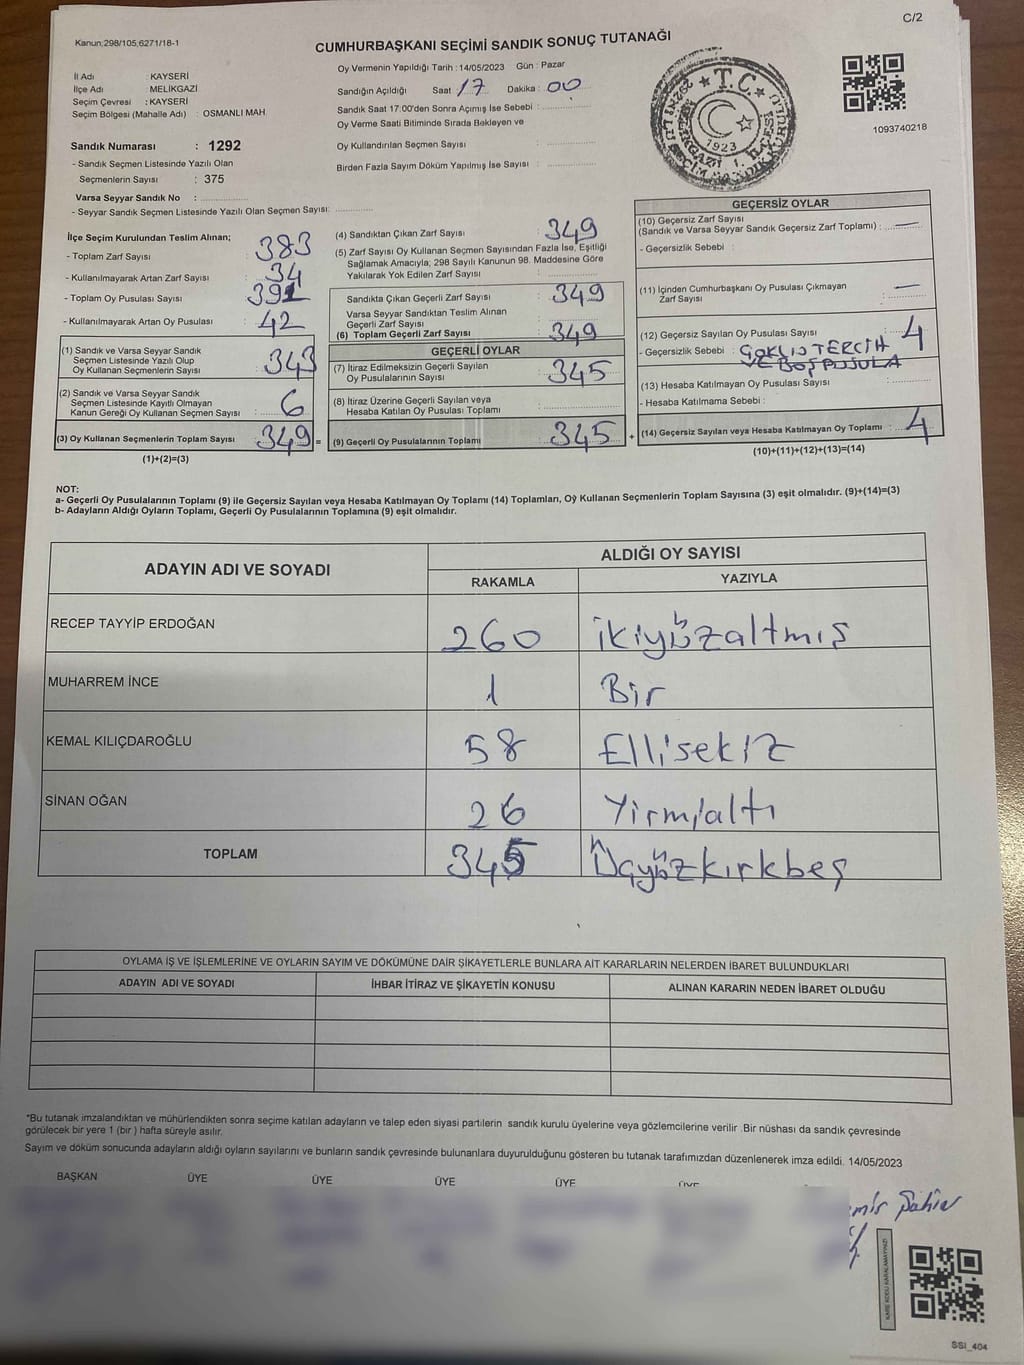 C/2
Kanun;298/105;6271/18-1
CUMHURBAŞKANI SEÇİMİ SANDIK SONUÇ TUTANAĞI
İl Adı : KAYSERİ
İlçe Adı : MELİKGAZİ
Seçim Çevresi : KAYSERİ
Seçim Bölgesi (Mahalle Adı) : OSMANLI MAH
Sandık Numarası : 1292
- Sandık Seçmen Listesinde Yazılı Olan
Seçmenlerin Sayısı : 375
Varsa Seyyar Sandık No :
- Seyyar Sandık Seçmen Listesinde Yazılı Olan Seçmen Sayısı:
Oy Vermenin Yapıldığı Tarih : 14/05/2023 Gün : Pazar
Sandığın Açıldığı Saat 17 Dakika : 00
Sandık Saat 17:00'den Sonra Açımış İse Sebebi :
Oy Verme Saati Bitiminde Sırada Bekleyen ve
Oy Kullandırılan Seçmen Sayısı :
Birden Fazla Sayım Döküm Yapılmış İse Sayısı :
T.C.
1923
1093740218
İlçe Seçim Kurulundan Teslim Alınan;
- Toplam Zarf Sayısı : 383
- Kullanılmayarak Artan Zarf Sayısı : 34
- Toplam Oy Pusulası Sayısı : 391
- Kullanılmayarak Artan Oy Pusulası : 42
(1) Sandık ve Varsa Seyyar Sandık
Seçmen Listesinde Yazılı Olup
Oy Kullanan Seçmenlerin Sayısı : 343
(2) Sandık ve Varsa Seyyar Sandık
Seçmen Listesinde Kayıtlı Olmayan
Kanun Gereği Oy Kullanan Seçmen Sayısı : 6
(3) Oy Kullanan Seçmenlerin Toplam Sayısı : 349 =
(1)+(2)=(3)
(4) Sandıktan Çıkan Zarf Sayısı : 349
(5) Zarf Sayısı Oy Kullanan Seçmen Sayısından Fazla İse, Eşitliği
Sağlamak Amacıyla; 298 Sayılı Kanunun 98. Maddesine Göre
Yakılarak Yok Edilen Zarf Sayısı :
Sandıkta Çıkan Geçerli Zarf Sayısı : 349
Varsa Seyyar Sandıktan Teslim Alınan
Geçerli Zarf Sayısı :
(6) Toplam Geçerli Zarf Sayısı : 349
GEÇERLİ OYLAR
(7) İtiraz Edilmeksizin Geçerli Sayılan
Oy Pusulalarının Sayısı : 345
(8) İtiraz Üzerine Geçerli Sayılan veya
Hesaba Katılan Oy Pusulası Toplamı :
(9) Geçerli Oy Pusulalarının Toplamı : 345 +
GEÇERSİZ OYLAR
(10) Geçersiz Zarf Sayısı
(Sandık ve Varsa Seyyar Sandık Geçersiz Zarf Toplamı) : —
- Geçersizlik Sebebi :
(11) İçinden Cumhurbaşkanı Oy Pusulası Çıkmayan
Zarf Sayısı : —
(12) Geçersiz Sayılan Oy Pusulası Sayısı : 4
- Geçersizlik Sebebi : ÇOKLU TERCİH
VE BOŞ PUSULA
(13) Hesaba Katılmayan Oy Pusulası Sayısı :
- Hesaba Katılmama Sebebi :
(14) Geçersiz Sayılan veya Hesaba Katılmayan Oy Toplamı : 4
(10)+(11)+(12)+(13)=(14)
NOT:
a- Geçerli Oy Pusulalarının Toplamı (9) ile Geçersiz Sayılan veya Hesaba Katılmayan Oy Toplamı (14) Toplamları, Oy Kullanan Seçmenlerin Toplam Sayısına (3) eşit olmalıdır. (9)+(14)=(3)
b- Adayların Aldığı Oyların Toplamı, Geçerli Oy Pusulalarının Toplamına (9) eşit olmalıdır.
ADAYIN ADI VE SOYADI
ALDIĞI OY SAYISI
RAKAMLA YAZIYLA
RECEP TAYYİP ERDOĞAN 260 ikiyüzaltmış
MUHARREM İNCE 1 Bir
KEMAL KILIÇDAROĞLU 58 Ellisekiz
SİNAN OĞAN 26 Yirmialtı
TOPLAM 345 Üçyüzkırkbeş
OYLAMA İŞ VE İŞLEMLERİNE VE OYLARIN SAYIM VE DÖKÜMÜNE DAİR ŞİKAYETLERLE BUNLARA AİT KARARLARIN NELERDEN İBARET BULUNDUKLARI
ADAYIN ADI VE SOYADI İHBAR İTİRAZ VE ŞİKAYETİN KONUSU ALINAN KARARIN NEDEN İBARET OLDUĞU
*Bu tutanak imzalandıktan ve mühürlendikten sonra seçime katılan adayların ve talep eden siyasi partilerin sandık kurulu üyelerine veya gözlemcilerine verilir .Bir nüshası da sandık çevresinde
görülecek bir yere 1 (bir ) hafta süreyle asılır.
Sayım ve döküm sonucunda adayların aldığı oyların sayılarını ve bunların sandık çevresinde bulunanlara duyurulduğunu gösteren bu tutanak tarafımızdan düzenlenerek imza edildi. 14/05/2023
BAŞKAN ÜYE ÜYE ÜYE ÜYE ÜYE
Şahin
KARE KODU KARALAMAYINIZ!
SSI_404